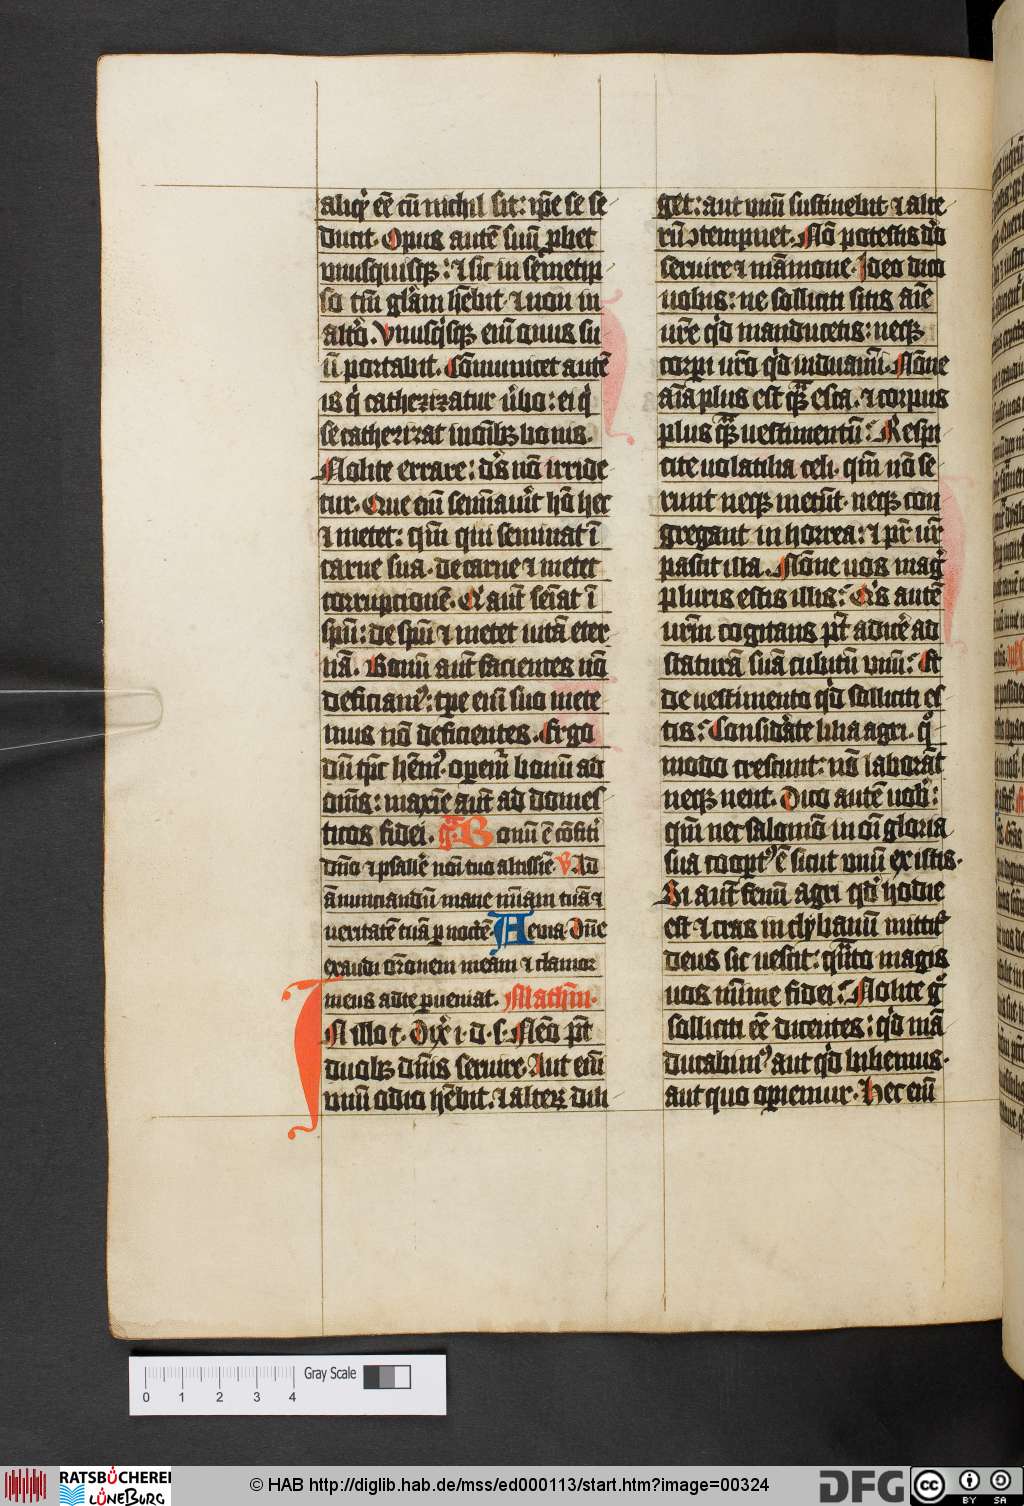 aliqͥ eē cū nichil sit: ip̄e se se
ducit. Opus autē suū ꝓbet
vnusquisqꝫ: ⁊ sic in semetip
so tm̄ glām hēbit ⁊ non in
altͦ. Vnusqͥsqꝫ eniꝫ onus su
ū portabit. Cōmunicet autē
is qͥ catheziꝫatur v̄bo: ei qͥ
se catheziꝫat in om̄ibꝫ bonis.
Nolite errare: dꝰs nō irride
tur. Que em̄ semīauīt hō hec
⁊ metet: qm̄ qui seminat ī
carne sua. de carne ⁊ metet
corrupcionē. Qͥ aut̄ semīat ī
spū: de spū ⁊ metet vitā eter
nā. Bonū aut̄ facientes nō
deficiamꝰ: tꝑe em̄ suo mete
mus nō deficientes. Ergo
dū tp̄c hēmꝰ. operemͬ bonū ad
om̄s: maxīe aūt ad domes
ticos fidei. gͣ. Bonū ē cōfiti
dn̄o ⁊ psallē nōi tuo altissīe. V Ad
ānunciandū mane mīam tuā ⁊
veritatē tuā ꝑ noctē. Aevia. Dn̄e
exaudi orōnem meām ⁊ clamor
meus ad te ꝑueniat. Mathm̄.
IN illo t. Dix̄ i. d. s. Nēo pt̄
duobꝫ dn̄is seruire. Aut em̄
vnū odio hēbit. ⁊ alterꝫ dili
get: aut vnū sustinebit ⁊ alte
rū ꝯtempnet. Nō potestis dōo
seruire ⁊ māmone. Ideo dico
vobis: ne solliciti sitis aīe
vr̄e qͥd manducetis: neqꝫ
corpi vr̄o qͥd induamī. Nōne
aīa plus est qͣꝫ esca. ⁊ corpus
plus qͣꝫ vestimentū: Respi
cite volatilia celi. qm̄ nō se
runt neqꝫ metūt. neqꝫ con
gregant in horrea: ⁊ pr̄ vr̄
pascit illa. Nōne vos magͥ
pluris estis illis: Qͥs autē
vrm̄ cogitans pt̄ adicē ad
staturā suā cubitū vnū: Et
de vestimento qͥd solliciti es
tis: Considͣte lilia agri. qͦ
modo crescunt: nō laborāt
neqꝫ nent. Dico autē vobͥ:
qm̄ nec salomō in om̄i gloria
sua coopͭꝰ ē sicut vnū ex istis.
Si aut̄ fenū agri qͥd hodie
est ⁊ cras in clybanū mittit͛
deus sic vestit: qͣnto magis
vos mīme fidei: Nolite gͦ
solliciti eē dicentes: qͥd mā
ducabimꝰ aut qͥd bibemus.
aut quo oꝑiemur. Hec em̄
Gray Scale
0 1 2 3 4
RATSBÜCHEREI
LÜNEBURG
© HAB http://diglib.hab.de/mss/ed000113/start.htm?image=00324
DFG
cc
BY SA